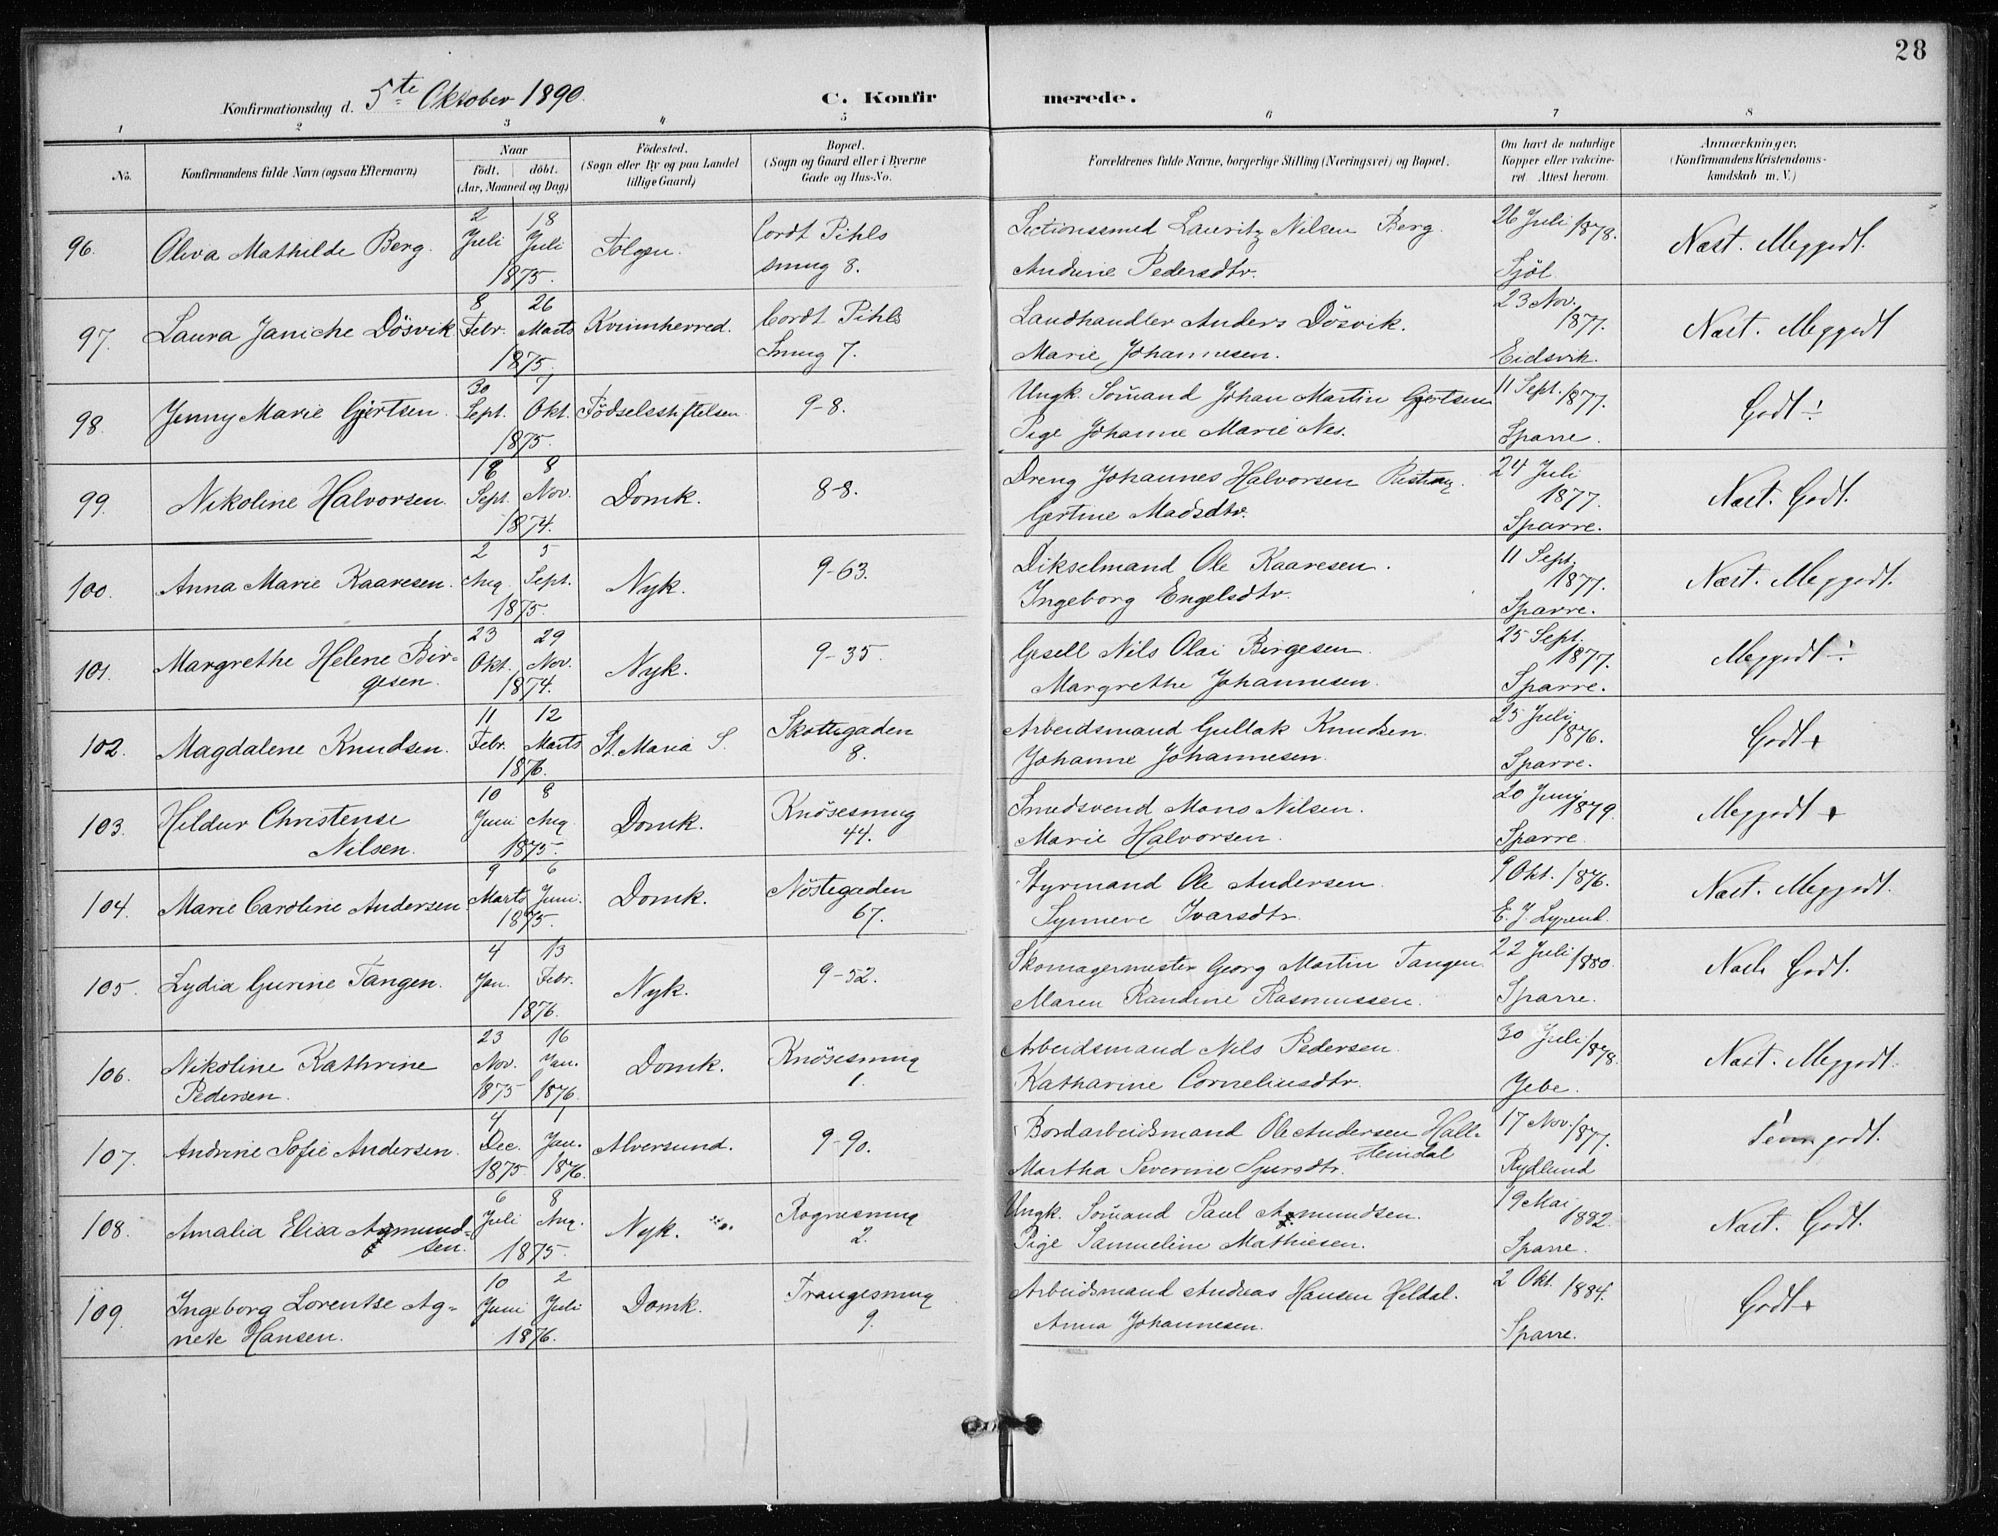 28
Konfirmationsdag d. 5te Oktober 1890. C. Konfirmerede.
1 2 3 4 5 6 7 8
No. Konfirmandens fulde Navn (ogsaa Efternavn) Naar födt. döbt. (Aar, Maaned og Dag) Födested. (Sogn eller By og paa Landet tillige Gaard) Bopæl. (Sogn og Gaard eller i Byerne Gade og Hus-No. Forældrenes fulde Navne, borgerlige Stilling (Næringsvei) og Bopæl. Om havt de naturlige Kopper eller vakcineret. Attest herom. Anmærkninger. (Konfirmandens Kristendomskundskab m. V.)
96. Oliva Mathilde Berg. 2 Juli 18 Juli 1875. Cordt Pihls smug 8. Sectionssmed Lauritz Nilsen Berg. Andrine Pedersdtr. 26 Juli 1878. Sjöl. Næst. Meggodt.
97. Laura Janiche Dösvik 8 Febr. 26 Marts 1875. Kvinnherred. Cordt Pihls Smug 7. Landhandler Anders Dösvik. Marie Johannesen. 23 Nov. 1877. Eidsvik. Næst. Meggodt
98. Jenny Marie Gjertsen. 30 Sept. 7 Okt. 1875. Födselsstiftelsen. 9-8. Ungk. Sömand Johan Martin Gjertsen Pige Johanne Marie Nes. 11 Sept. 1877. Sparre. Godt ÷
99. Nikoline Halvorsen. 18 Sept. 8 Nov. 1874. Domk. 8-8. Dreng Johannes Halvorsen Risting. Gertine Madsdtr. 24 Juli 1877. Sparre. Næst. Godt.
100. Anna Marie Kaaresen. 2 Aug. 5 Sept. 1875. Nyk. 9-63. Dikselmand Ole Kaaresen. Ingeborg Engelsdtr. 11 Sept. 1877. Sparre. Næst. Meggodt.
101. Margrethe Helene Birgesen. 23 Okt. 29 Nov. 1874. Nyk. 9-35. Gesell Nils Olai Birgesen. Margrethe Johannesen. 25 Sept. 1877. Sparre. Meggodt ÷
102. Magdalene Knudsen. 11 Febr. 12 Marts 1876. St. Maria S. Skottegaden 8. Arbeidsmand Gullak Knudsen. Johanne Johannesen. 25 Juli 1876. Sparre. Godt +
103. Heldur Christense Nilsen. 10 Juni 8 Aug. 1875. Domk. Knösesmug 44. Smedsvend Mons Nilsen. Marie Halvorsen. 20 Juni 1879. Sparre. Meggodt +
104. Marie Caroline Andersen. 9 Marts 6 Juni. 1875. Domk. Nöstegaden 67. Styrmand Ole Andersen. Synneve Ivarsdtr. 9 Okt. 1876. E. J. Næst. Meggodt.
105. Lydia Gurine Tangen. 4 Jan. 13 Febr. 1876. Nyk. 9-52. Skomagermester Georg Martin Tangen. Maren Randine Rasmussen. 22 Juli 1880. Sparre. Næst. Godt.
106. Nikoline Kathrine Pedersen. 23 Nov. 1875 16 Jan. 1876. Domk. Knösesmug 1. Arbeidsmand Nils Pedersen. Katharine Corneliusdtr. 30 Juli 1878. Jebe. Næst. Meggodt.
107. Andrine Sofie Andersen. 4 Dec. 1875 1 Jan. 1876. Alversund. 9-90. Bordarbeidsmand Ole Andersen Hallsteindal Martha Severine Sjursdtr. 17 Nov. 1877. Rydland Temgodt.
108. Amalia Elisa Asmundsen. 6 Juli 8 Aug. 1875. Nyk. Rognesmug 2. Ungk. Sömand Paul Asmundsen. Pige Samueline Mathiesen. 19 Mai 1882. Sparre. Næst. Godt.
109. Ingeborg Lorentse Agnete Hansen. 10 Juni 2 Juli 1876. Domk. Trangesmug 9. Arbeidsmand Andreas Hansen Heldal. Anna Johannesen. 2 Okt. 1884. Sparre. Godt +